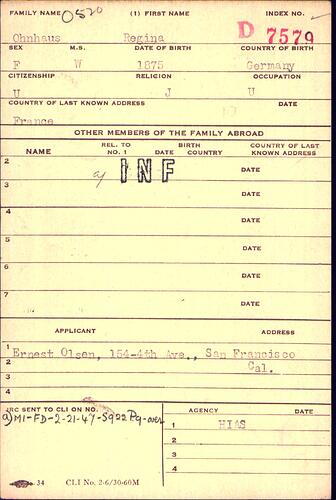 FAMILY NAME (1) FIRST NAME INDEX NO.
0520
D 7579
Ohnhaus Regina
SEX M.S. DATE OF BIRTH COUNTRY OF BIRTH
F W 1875 Germany
CITIZENSHIP RELIGION OCCUPATION
U J U
COUNTRY OF LAST KNOWN ADDRESS DATE
France
OTHER MEMBERS OF THE FAMILY ABROAD
NAME REL. TO NO. 1 BIRTH DATE COUNTRY COUNTRY OF LAST KNOWN ADDRESS
2 a) INF DATE
3 DATE
4 DATE
5 DATE
6 DATE
7 DATE
APPLICANT ADDRESS
1 Ernest Olsen, 154-4th Ave., San Francisco
2 Cal.
3
4
IRC SENT TO CLI ON NO. AGENCY DATE
a) MI-FD-2-21-47-5922 Pg-over
1 HIAS
2
3
4
34 CLI No. 2-6/30-60M